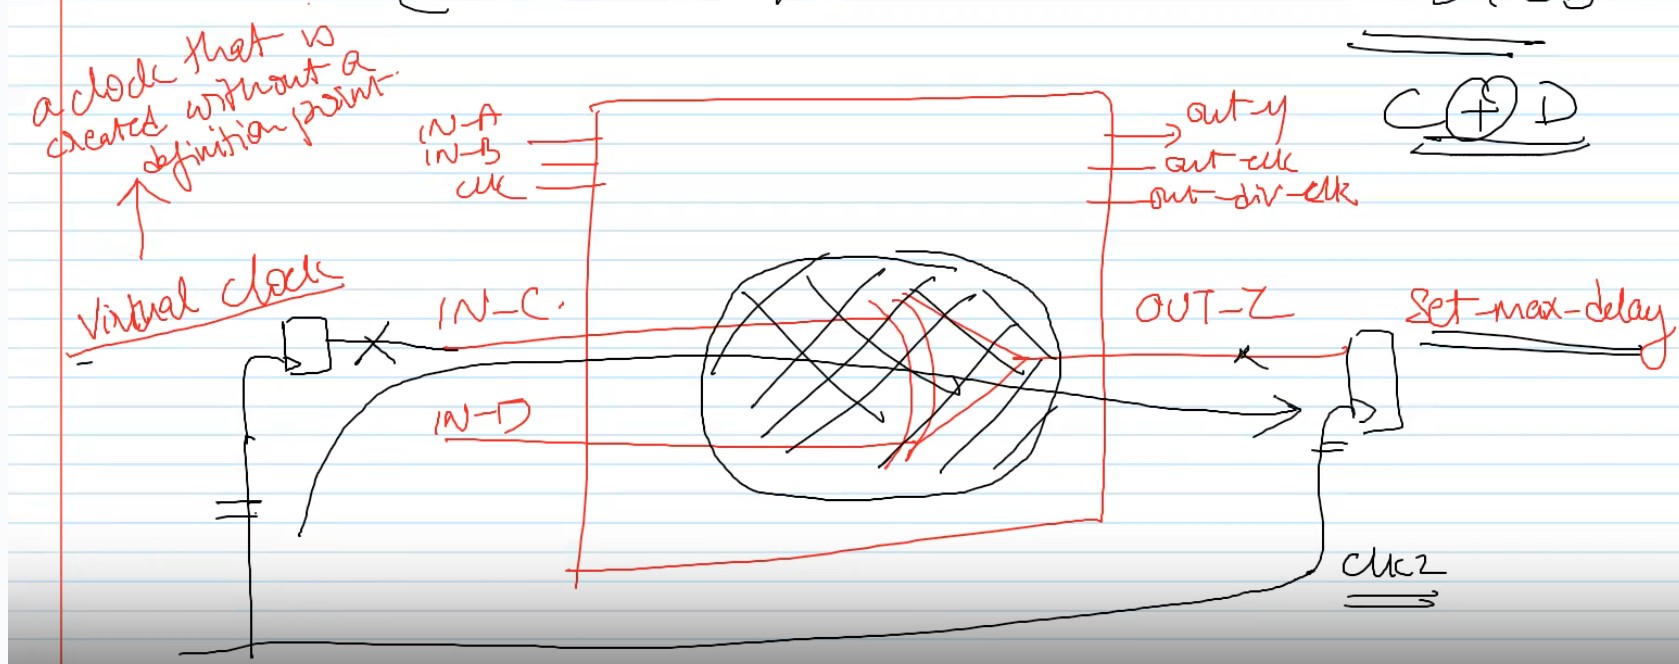 a clock that is
created without a
definition point.
Virtual clock
IN-A
IN-B
CLK
IN-C.
IN-D
out-y
out-clk
out-div-clk
C + D
OUT-Z
Set-max-delay
Clk2